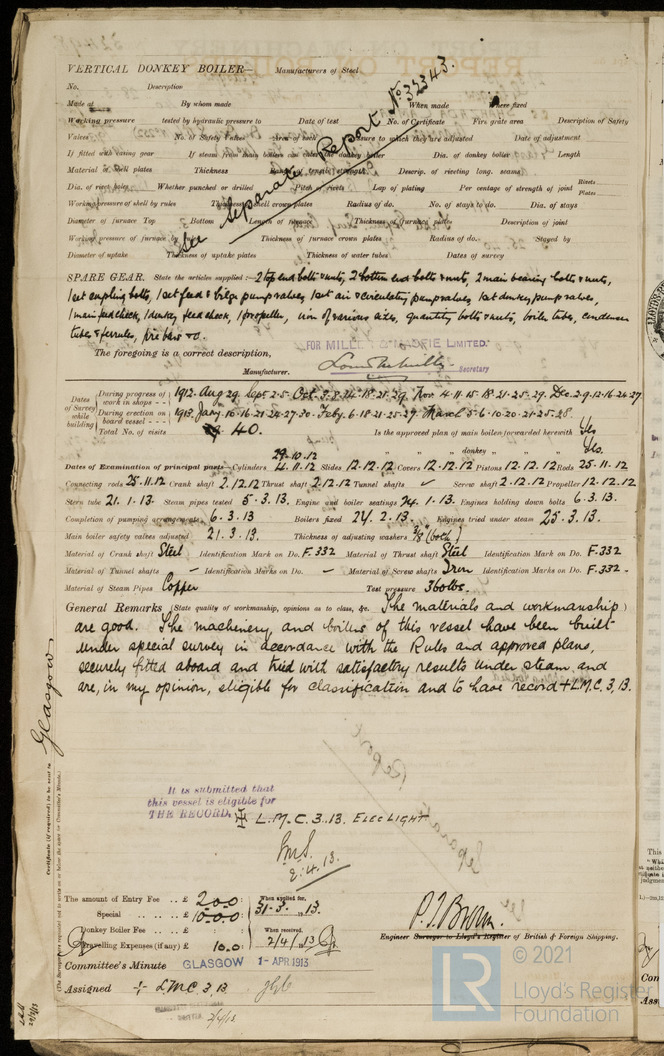 VERTICAL DONKEY BOILER— Manufacturers of Steel
No. Description
Made at By whom made When made Where fixed
Working pressure tested by hydraulic pressure to Date of test No. of Certificate Fire grate area Description of Safety
Valves No. of Safety Valves Area of each Pressure to which they are adjusted Date of adjustment
If fitted with easing gear If steam from main boilers can enter the donkey boiler Dia. of donkey boiler Length
Material of shell plates Thickness Range of tensile strength Descrip. of riveting long. seams
Dia. of rivet holes Whether punched or drilled Pitch of rivets Lap of plating Per centage of strength of joint Rivets Plates
Working pressure of shell by rules Thickness of shell crown plates Radius of do. No. of stays to do. Dia. of stays
Diameter of furnace Top Bottom Length of furnace Thickness of furnace plates Description of joint
Working pressure of furnace by rules Thickness of furnace crown plates Radius of do. Stayed by
Diameter of uptake Thickness of uptake plates Thickness of water tubes Dates of survey
See Separate Report No 32343.
SPARE GEAR. State the articles supplied:— 2 top end bolts & nuts, 2 bottom end bolts & nuts, 2 main bearing bolts & nuts,
1 set coupling bolts, 1 set feed & bilge pump valves, 1 set air & circulating pump valves, 1 set donkey pump valves,
1 main feed check, 1 donkey feed check, 1 propeller, iron of various sizes, quantity bolts & nuts, boiler tubes, condenser
tubes & ferrules, fire bars &c.
The foregoing is a correct description,
FOR LIMITED.
Manufacturer. Secretary
Dates of Survey while building
During progress of work in shops -- 1912. Aug 29. Sept 2. 5. Oct. 3. 8. 24. 18. 21. 29. Nov. 4. 11. 15. 18. 21. 25. 29. Dec. 2. 9. 12. 16. 24. 27
During erection on board vessel --- 1913. Jany. 10. 16. 21. 24. 27. 30. Feby. 6. 18. 21. 25. 27. March 5. 6. 10. 20. 21. 25. 28.
Total No. of visits 40. Is the approved plan of main boiler forwarded herewith Yes
" " " donkey " " " Yes.
29.10.12
Dates of Examination of principal parts—Cylinders 4.11.12 Slides 12.12.12 Covers 12.12.12 Pistons 12.12.12 Rods 25.11.12
Connecting rods 25.11.12 Crank shaft 2.12.12 Thrust shaft 2.12.12 Tunnel shafts ✓ Screw shaft 2.12.12 Propeller 12.12.12
Stern tube 21.1.13. Steam pipes tested 5.3.13. Engine and boiler seatings 24.1.13. Engines holding down bolts 6.3.13.
Completion of pumping arrangements 6.3.13 Boilers fixed 24.2.13. Engines tried under steam 25.3.13.
Main boiler safety valves adjusted 21.3.13. Thickness of adjusting washers 3/8" (both)
Material of Crank shaft Steel Identification Mark on Do. F.332 Material of Thrust shaft Steel Identification Mark on Do. F.332
Material of Tunnel shafts – Identification Marks on Do. ✓ Material of Screw shafts Iron Identification Marks on Do. F.332.
Material of Steam Pipes Copper Test pressure 360 lbs.
General Remarks (State quality of workmanship, opinions as to class, &c. The materials and workmanship)
are good. The machinery and boilers of this vessel have been built
under special survey in accordance with the Rules and approved plans,
securely fitted aboard and tried with satisfactory results under steam, and
are, in my opinion, eligible for classification and to have record + L.M.C. 3,13.
Glasgow
It is submitted that
this vessel is eligible for
THE RECORD. + L.M.C. 3.13. ELEC LIGHT
2.4.13.
The amount of Entry Fee .. £ 2.0.0 When applied for,
Special .. .. £ 10.0.0 31.3.13.
Donkey Boiler Fee .. £ When received,
Travelling Expenses (if any) £ 10.0 2/4/13
Engineer Surveyor to Lloyd's Register of British & Foreign Shipping.
Committee's Minute GLASGOW 1-APR 1913
Assigned + LMC 3,13
© 2021
LR Lloyd's Register
Foundation